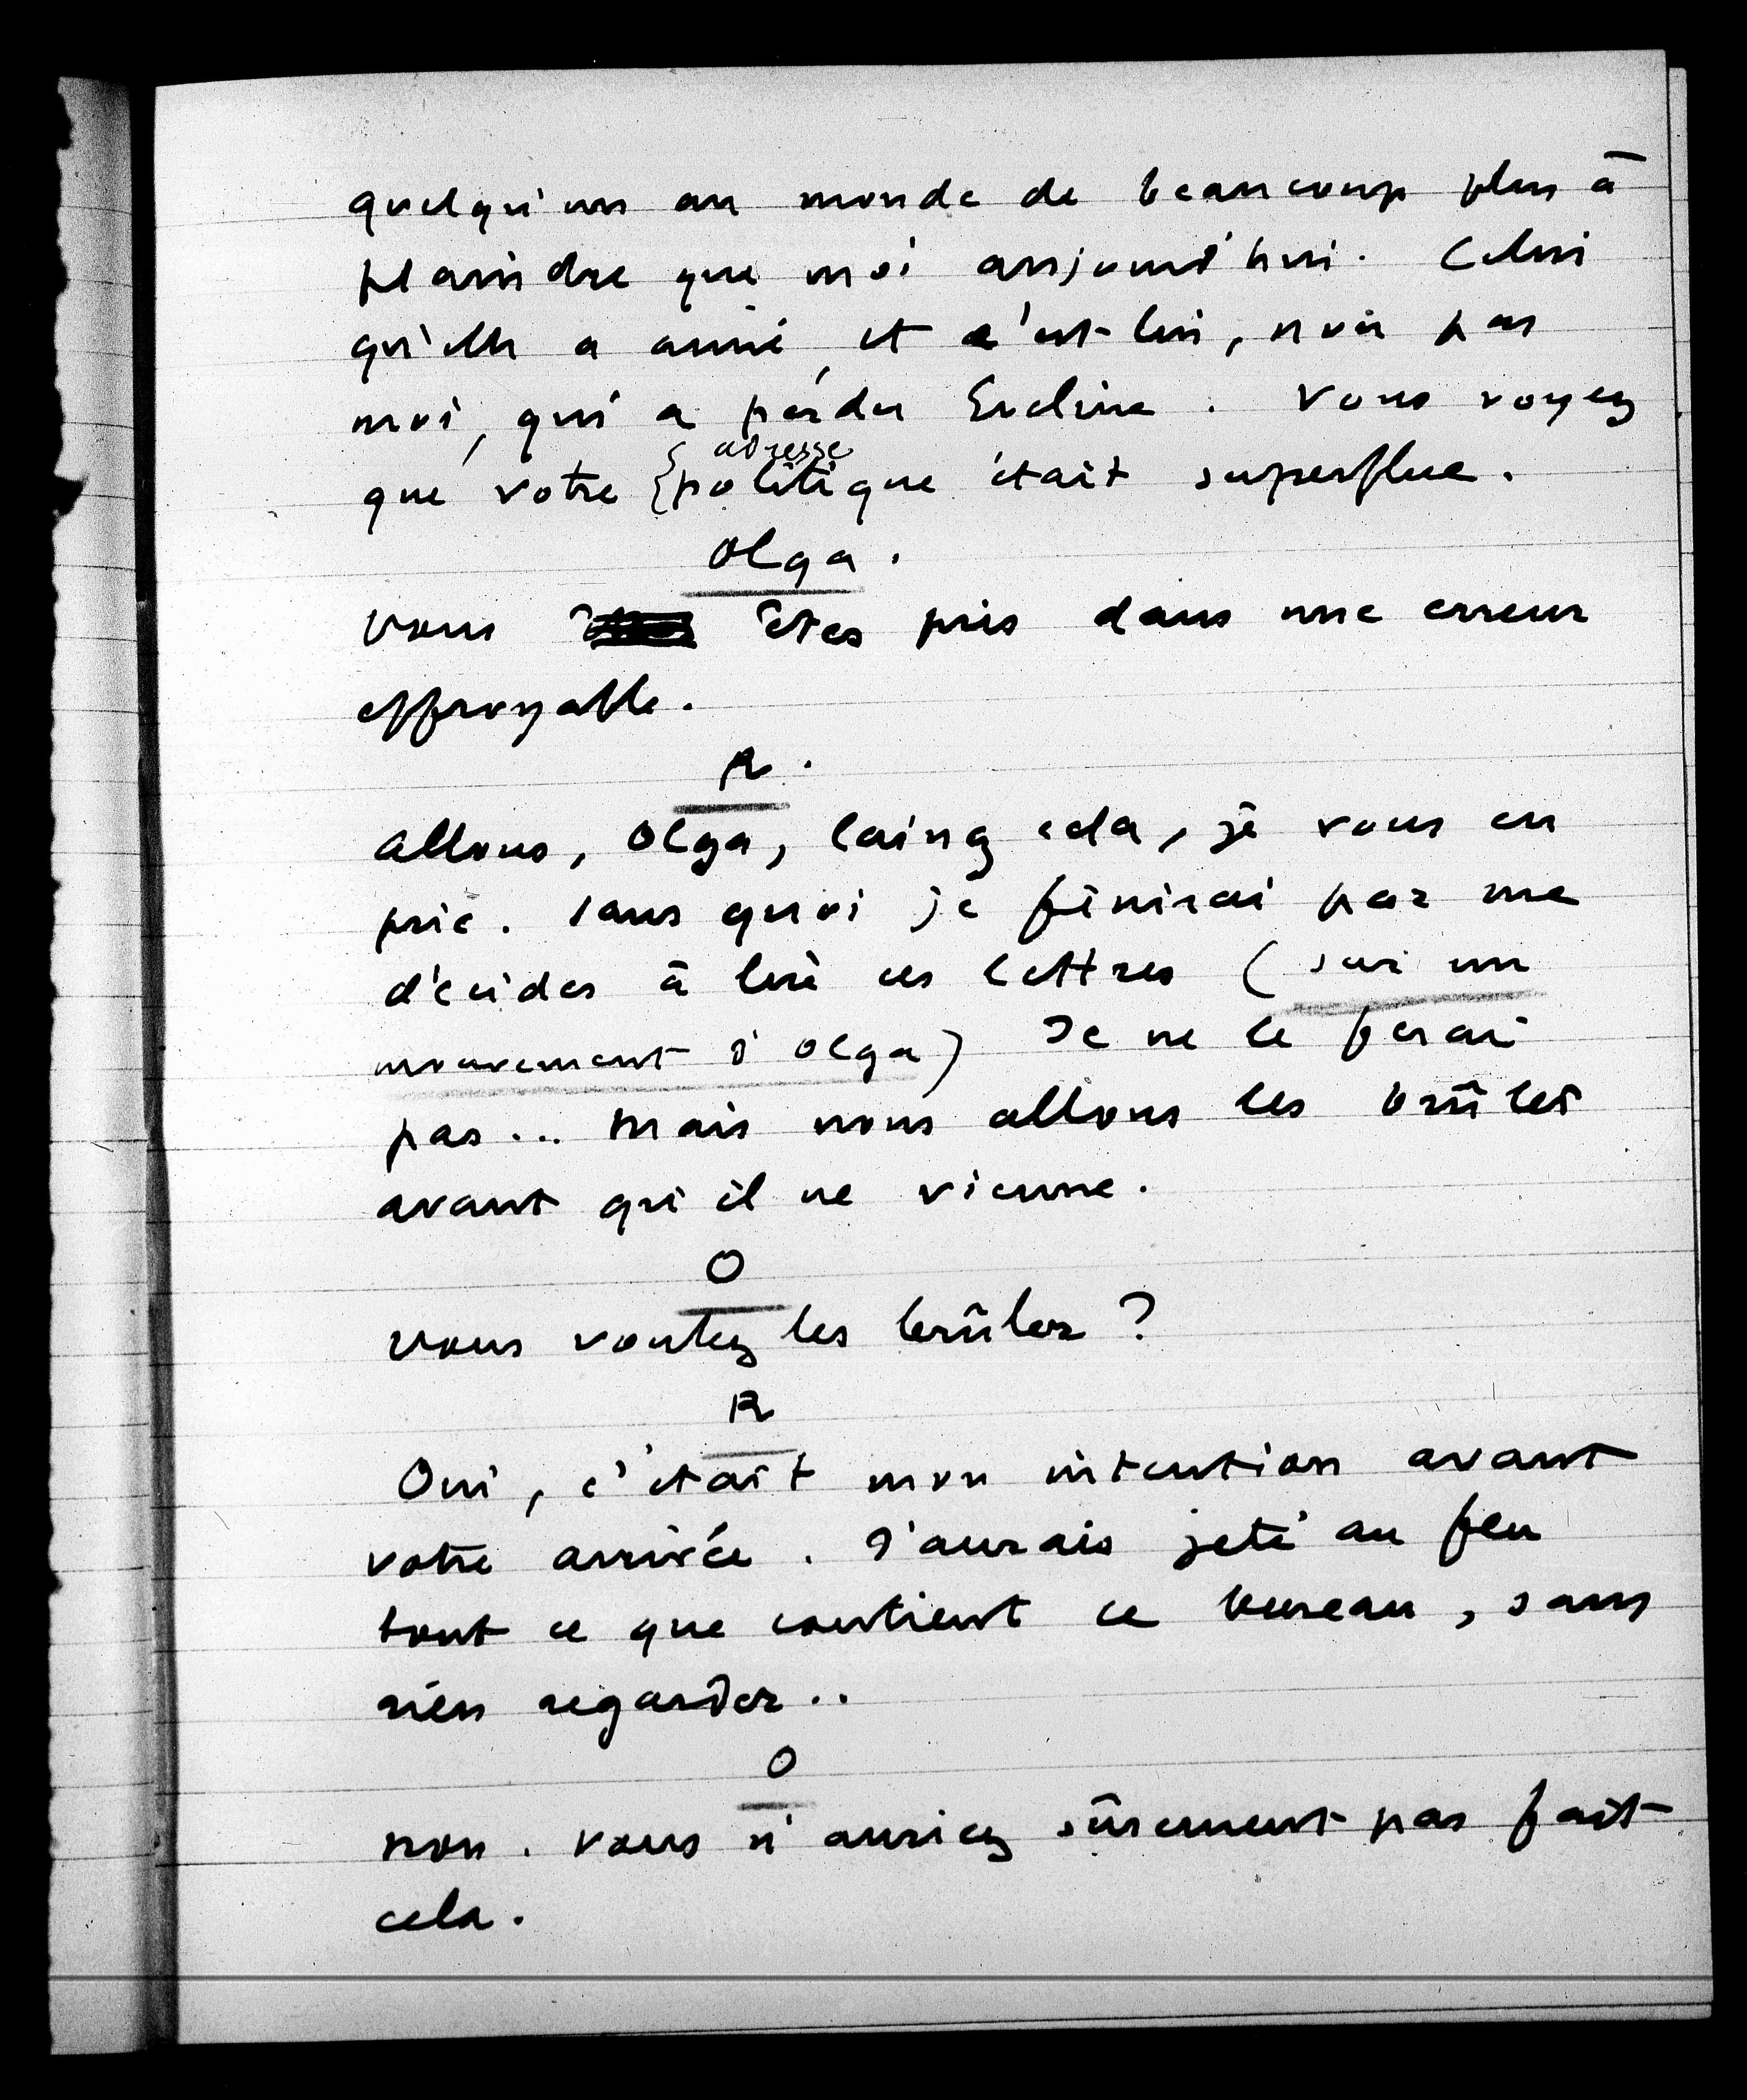 quelqu'un au monde de beaucoup plus à
plaindre que moi aujourd'hui. Celui
qu'elle a aimé, et c'est lui, non pas
moi, qui a perdu Eveline. Vous voyez
adresse
que votre {politique était superflue.
Olga.
Vous êtes pris dans une erreur
effroyable.
R.
Allons, Olga, laissez cela, je vous en
prie. Sans quoi je finirai par me
décider à lire ces lettres (sur un
mouvement d'Olga) Je ne le ferai
pas... Mais nous allons les brûler
avant qu'il ne vienne.
O
Vous voulez les brûler ?
R
Oui, c'était mon intention avant
votre arrivée. J'aurais jeté au feu
tout ce que contient ce bureau, sans
rien regarder..
O
Non. Vous n'auriez sûrement pas fait
cela.